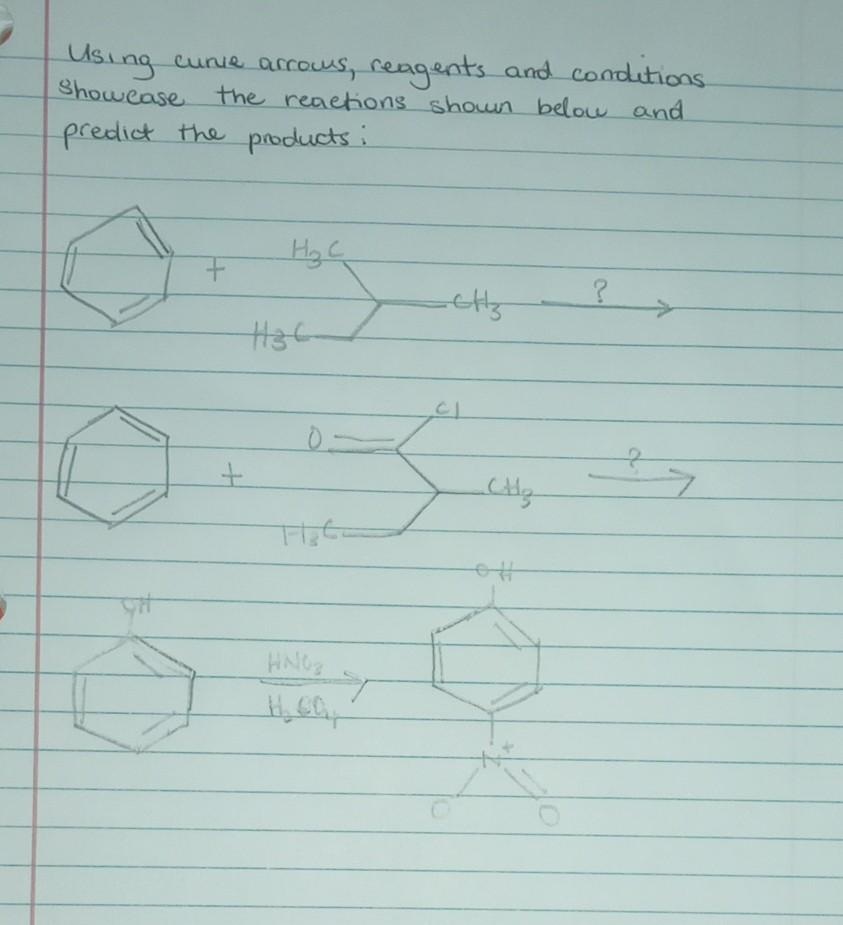 Using curve arrows, reagents and conditions
showcase the reactions shown below and
predict the products:
+ H3C CH3 ?
H3C
Cl
O
+ CH3 ?
H3C
OH
OH
HNO3
H2SO4
N+
O O